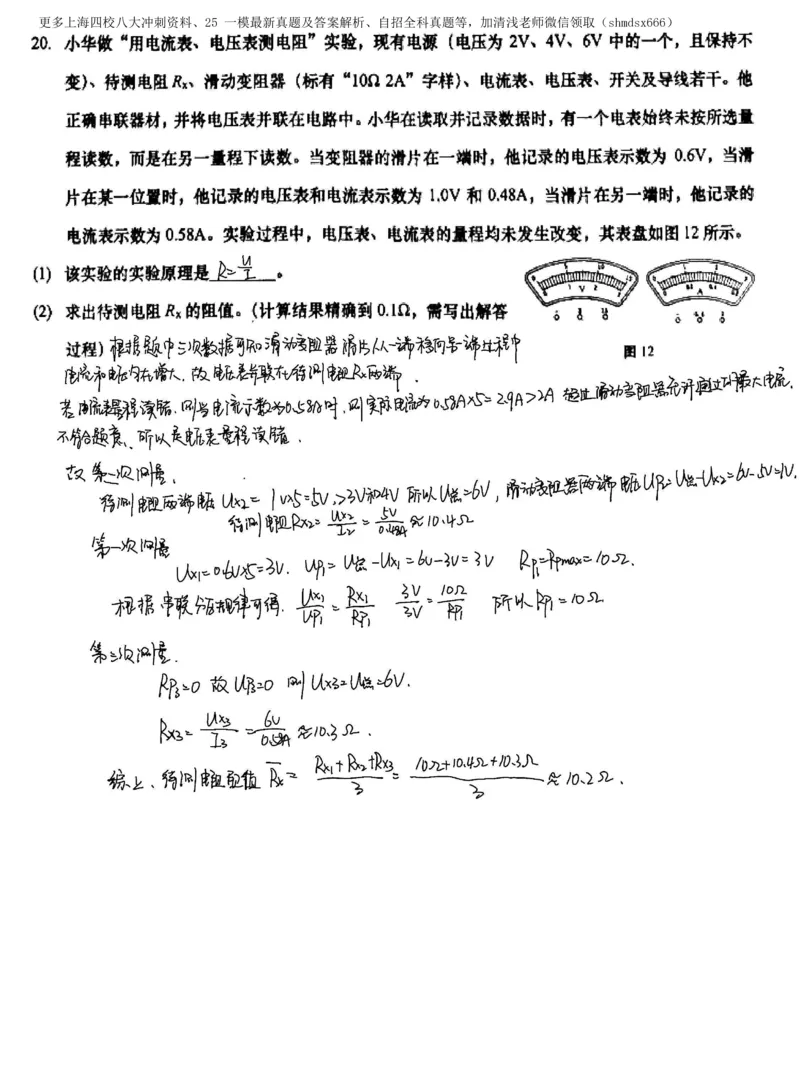 更多上海四校八大冲刺资料、25 一模最新真题及答案解析、自招全科真题等，加清浅老师微信领取（shmdsx666）
20. 小华做“用电流表、电压表测电阻”实验，现有电源（电压为 2V、4V、6V 中的一个，且保持不
变）、待测电阻 Rx、滑动变阻器（标有“10Ω 2A”字样）、电流表、电压表、开关及导线若干。他
正确串联器材，并将电压表并联在电路中。小华在读取并记录数据时，有一个电表始终未按所选量
程读数，而是在另一量程下读数。当变阻器的滑片在一端时，他记录的电压表示数为 0.6V，当滑
片在某一位置时，他记录的电压表和电流表示数为 1.0V 和 0.48A，当滑片在另一端时，他记录的
电流表示数为 0.58A。实验过程中，电压表、电流表的量程均未发生改变，其表盘如图 12 所示。
(1) 该实验的实验原理是 R=U/I 。
(2) 求出待测电阻 Rx 的阻值。（计算结果精确到 0.1Ω，需写出解答
过程）根据题中三次数据可知滑动变阻器滑片从一端移向另一端过程中
V
A
图 12
电流和电压均在增大，故电压表并联在待测电阻Rx两端。
若电流表量程读错，则当电流示数为0.58A时，则实际电流为0.58A×5=2.9A>2A 超过滑动变阻器允许通过的最大电流，
不符合题意、所以是电压表量程读错。
故第二次测量，
待测电阻两端电压 Ux2= 1V×5=5V,>2V和4V 所以U总=6V，滑动变阻器两端电压UP2=U总-Ux2=6V-5V=1V.
待测电阻Rx2= Ux2/I2 = 5V/0.48A ≈10.4Ω
第一次测量
Ux1=0.6V×5=3V. UP1=U总-Ux1=6V-3V=3V RP1=RPmax=10Ω.
根据串联分压规律可得. Ux1/UP1 = Rx1/RP1 3V/3V = 10Ω/RP1 所以RP1=10Ω
第三次测量.
RP3=0 故UP3=0 则Ux3=U总=6V.
Rx3= Ux3/I3 = 6V/0.58A ≈10.3Ω.
综上、待测电阻阻值 Rx = Rx1+Rx2+Rx3/3 = 10Ω+10.4Ω+10.3Ω/3 ≈10.2Ω.